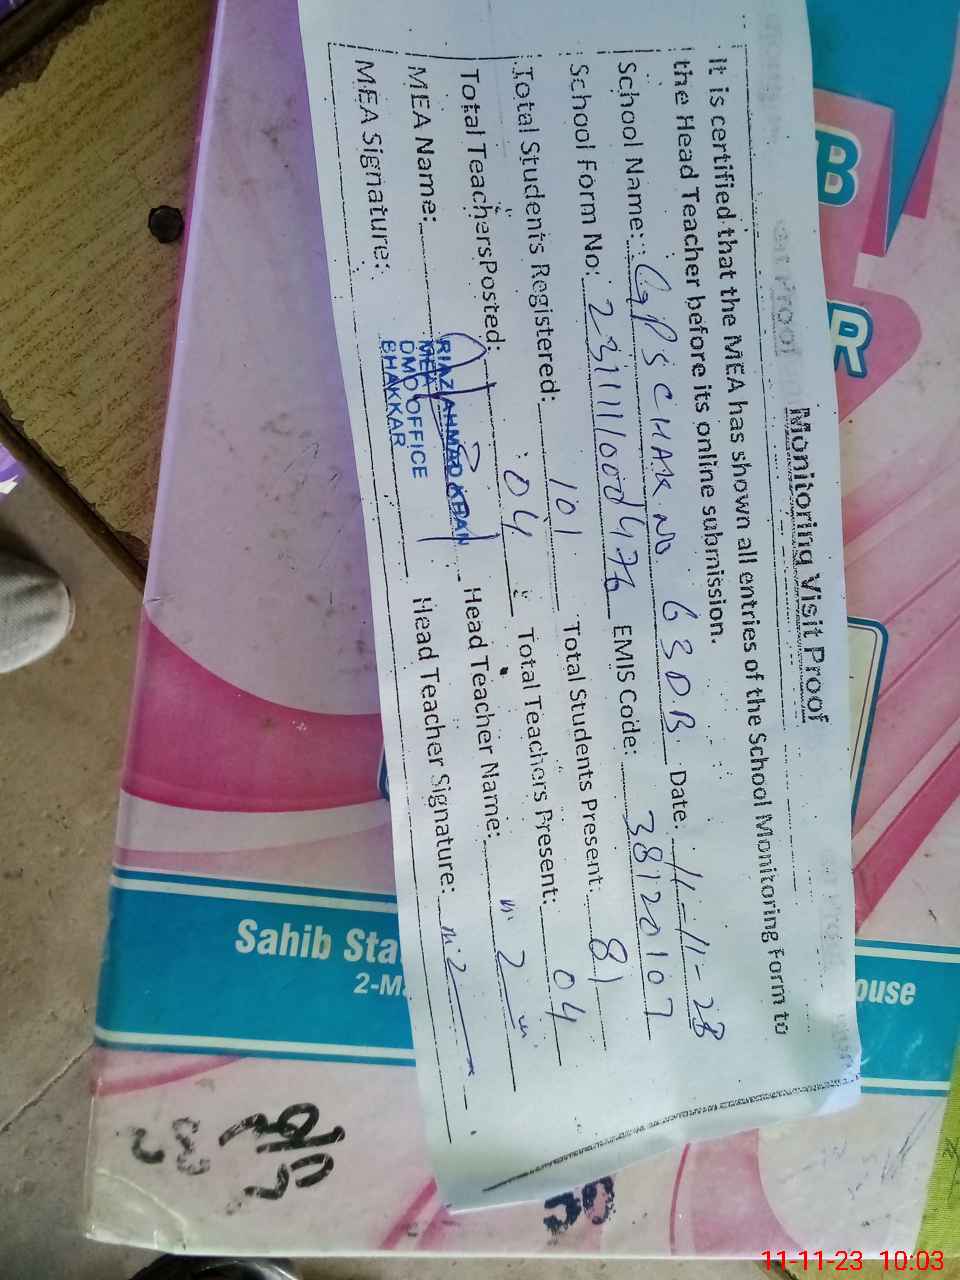 Monitoring Visit Proof
It is certified that the MEA has shown all entries of the School Monitoring Form to
the Head Teacher before its online submission.
School Name: GPS CHAK No 63DB Date: 11-11-23
School Form No: EMIS Code: 38120107
Total Students Registered: 101 Total Students Present: 81
Total Teachers Posted: 04 Total Teachers Present: 04
MEA Name: Head Teacher Name:
MEA Signature: Head Teacher Signature:
RIAZ AHMAD KHAN
MEA
DMO OFFICE
BHAKKAR
B
R
Sahib Sta
ouse
2-M
11-11-23 10:03